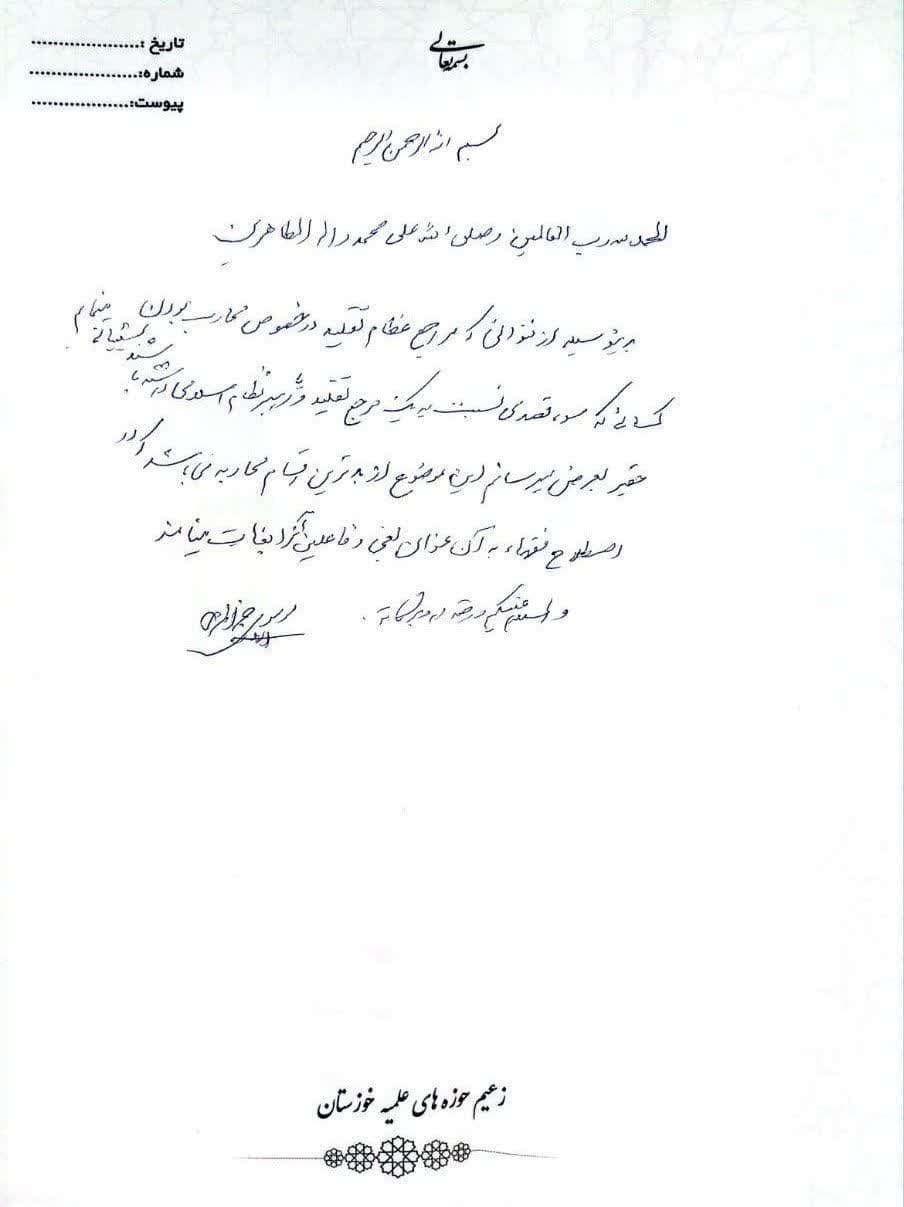 بسمه تعالی
تاریخ :....................
شماره:....................
پیوست:..................
بسم الله الرحمن الرحیم
الحمد لله رب العالمین وصلی الله علی محمد واله الطاهرین
بدینوسیله از فتوای مراجع عظام تقلید در خصوص محارب بودن پشتیبانی مینمایم
کسانی که سوء قصدی نسبت به یک مرجع تقلید و رهبر نظام اسلامی داشته باشند
حقیر بعرض میرسانم این موضوع از بدترین اقسام محاربه می باشد که در
اصطلاح فقهاء به آن عنوان بغی و فاعلین آنرا بغات مینامند
والسلام علیکم ورحمة الله وبرکاته .
زعیم حوزه های علمیه خوزستان